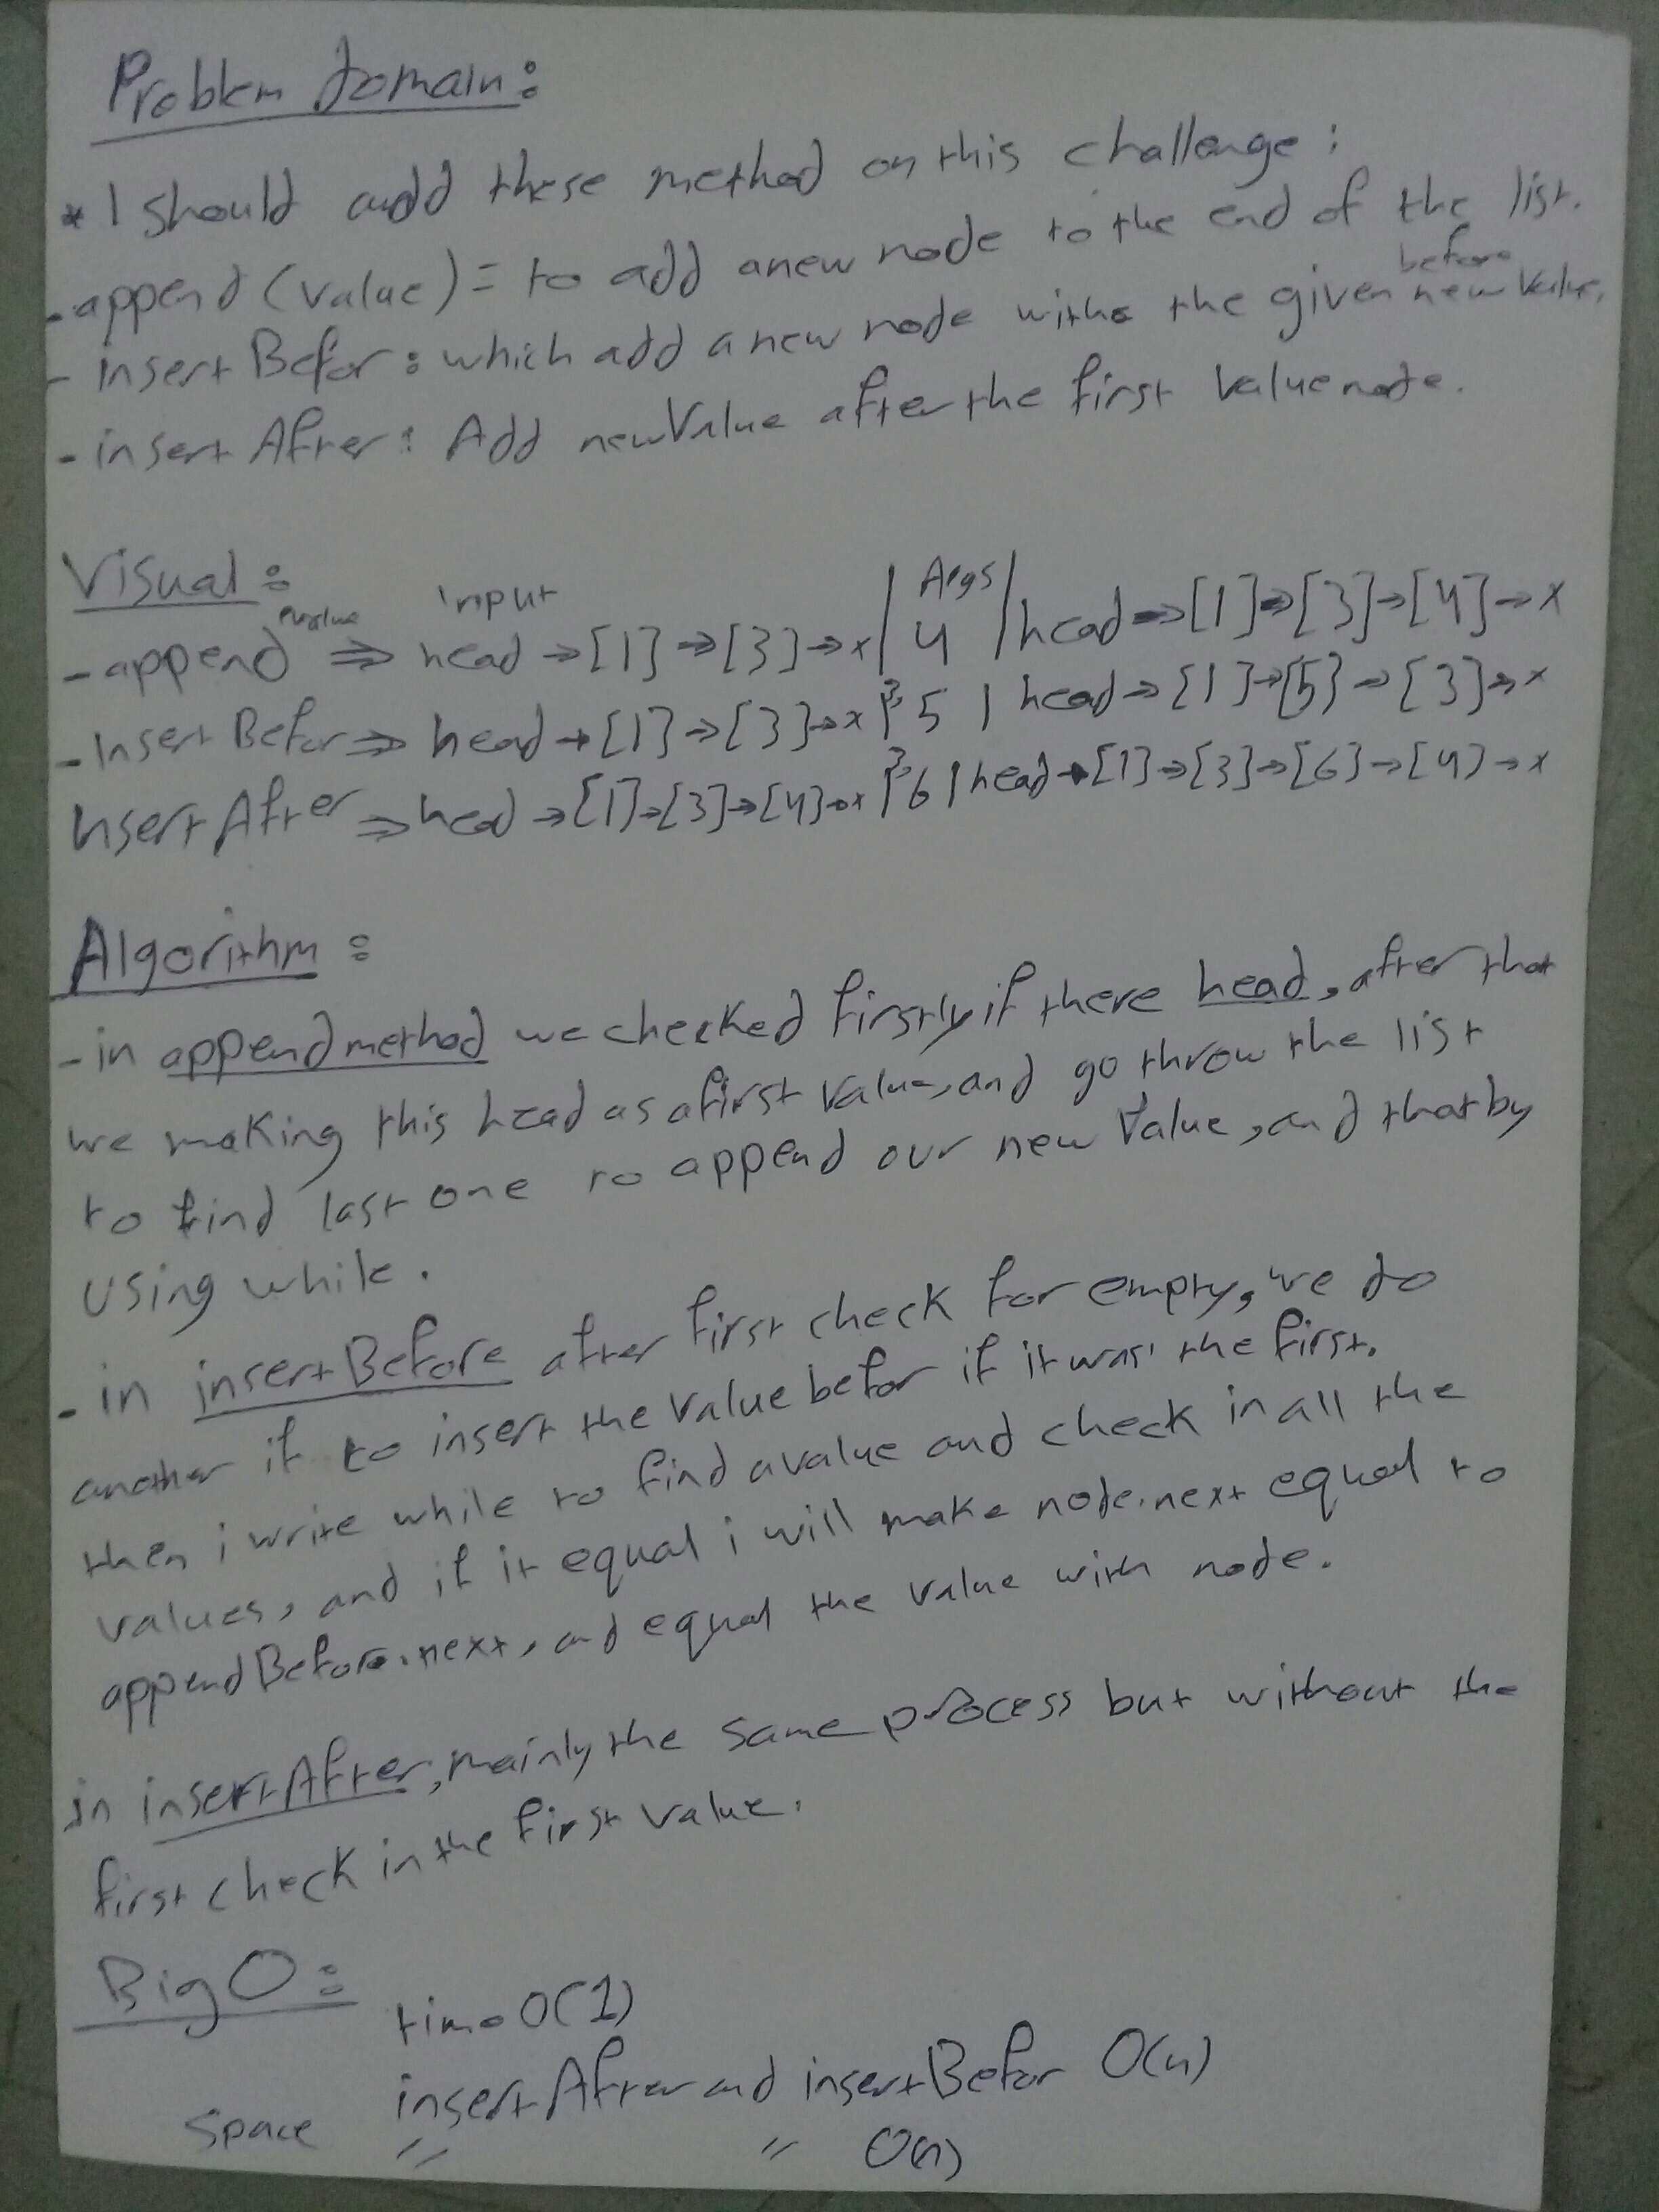 Problem domain:
* I should add these method on this challenge:
- append (value) = to add a new node to the end of the list.
before
- insert Befor: which add a new node with the given new value,
- insert After: Add new Value after the first value node.
Visual:
input Args
- append => head → [1] → [3] → x | 4 | head → [1] → [3] → [4] → x
- Insert Befor => head → [1] → [3] → x | 3, 5 | head → [1] → [5] → [3] → x
Insert After => head → [1] → [3] → [4] → x | 3, 6 | head → [1] → [3] → [6] → [4] → x
Algorithm:
- in append method we checked firstly if there head, after that
we making this head as a first value, and go throw the list
to find last one to append our new value, and that by
using while.
- in insert Before after first check for empty, we do
another if to insert the value befor if it was' the first.
then i write while to find a value and check in all the
values, and if it equal i will make node.next equal to
appendBefore.next, and equal the value with node.
in insertAfter, mainly the same process but without the
first check in the first value.
Big O:
time O(1)
insertAfter and insertBefor O(n)
Space " " O(n)